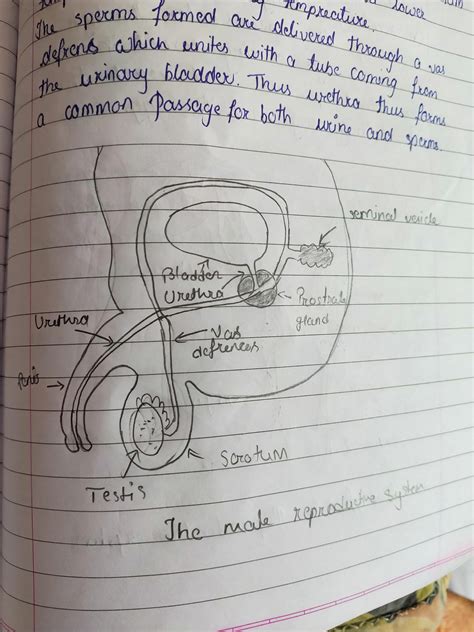 lower
temprecture.
The sperms formed are delivered through a vas
defrens which unites with a tube coming from
the urinary bladder. Thus urethra thus forms
a common passage for both urine and sperms.
seminal vesicle
Bladder
Urethra
Prostrate
gland
Urethra
Vas
defrences
Penis
Scrotum
Testis
The male reproductive system